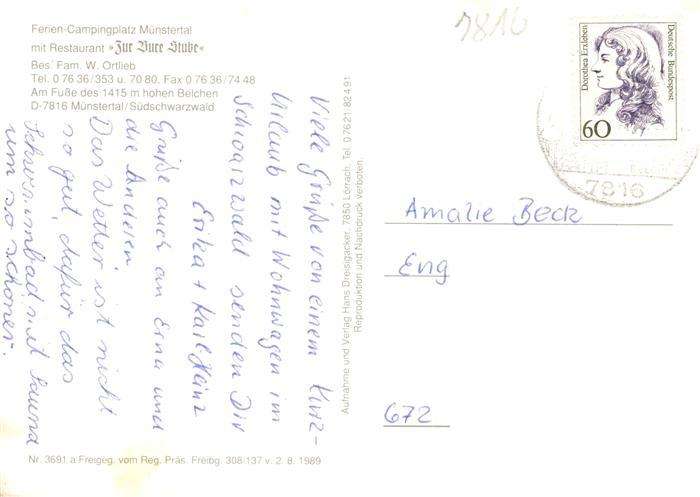 Ferien-Campingplatz Münstertal
mit Restaurant »Zur Bure Stube«
Bes. Fam. W. Ortlieb
Tel. 0 76 36/353 u. 70 80, Fax 0 76 36/74 48
Am Fuße des 1415 m hohen Belchen
D-7816 Münstertal/Südschwarzwald
7816
Dorothea Erxleben
Deutsche Bundespost
60
7816
Viele Grüße von einem Kurz-
Urlaub mit Wohnwagen im
Schwarzwald senden Dir
Erika + Karl-Heinz
Grüße auch an Erna und
die Anderen
Das Wetter ist nicht
so gut, dafür das
Schwimmbad mit Sauna
um so schöner.
Aufnahme und Verlag Hans Dreisigacker, 7850 Lörrach, Tel. 0 76 21 82 4 91
Reproduktion und Nachdruck verboten.
Amalie Beck
Eng
672
Nr. 3691 a Freigeg. vom Reg. Präs. Freibg. 308/137 v. 2. 8. 1989